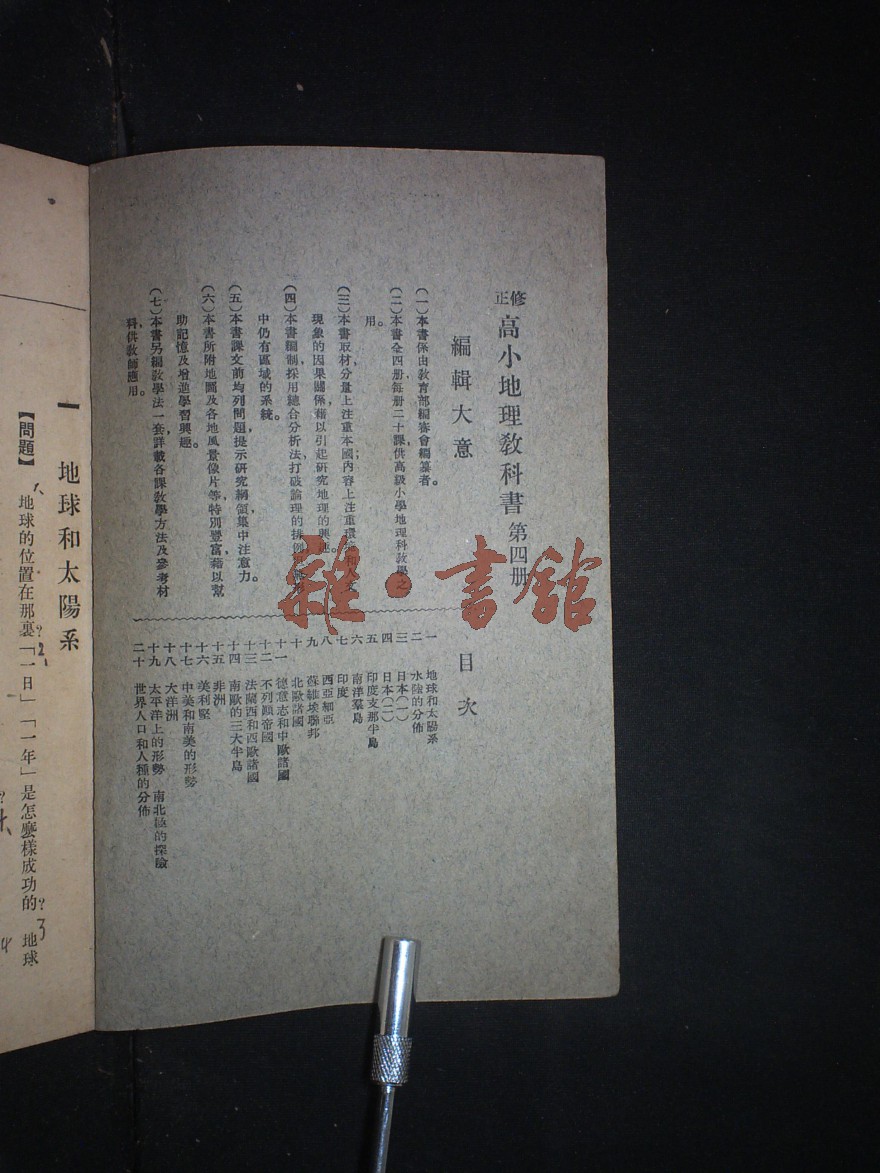 修正 高小地理教科書 第四册
編輯大意
(一)本書係由教育部編審會編纂者。
(二)本書全四册每册二十課供高級小學地理科教學之
用。
(三)本書取材分量上注重本國;內容上注重環
現象的因果關係藉以引起研究地理的興
(四)本書編制採用總合分析法打破論理的排例
中仍有區域的系統。
(五)本書課文前均列問題提示研究綱領集中注意力。
(六)本書所附地圖及各地風景像片等特別豐富藉以幫
助記憶及增進學習興趣。
(七)本書另編教學法一套詳載各課教學方法及參考材
料供教師應用。
目次
一 地球和太陽系
二 水陸的分佈
三 日本(一)
四 日本(二)
五 印度支那半島
六 南洋羣島
七 印度
八 西亞細亞
九 蘇維埃聯邦
十 北歐諸國
十一 德意志和中歐諸國
十二 不列顛帝國
十三 法蘭西和西歐諸國
十四 南歐的三大半島
十五 非洲
十六 美利堅
十七 中美和南美的形勢
十八 大洋洲
十九 太平洋上的形勢 南北極的探險
二十 世界人口和人種的分佈
一 地球和太陽系
【問題】 地球的位置在那裏?2「一日」「一年」是怎麼樣成功的?3 地球
雜·書館